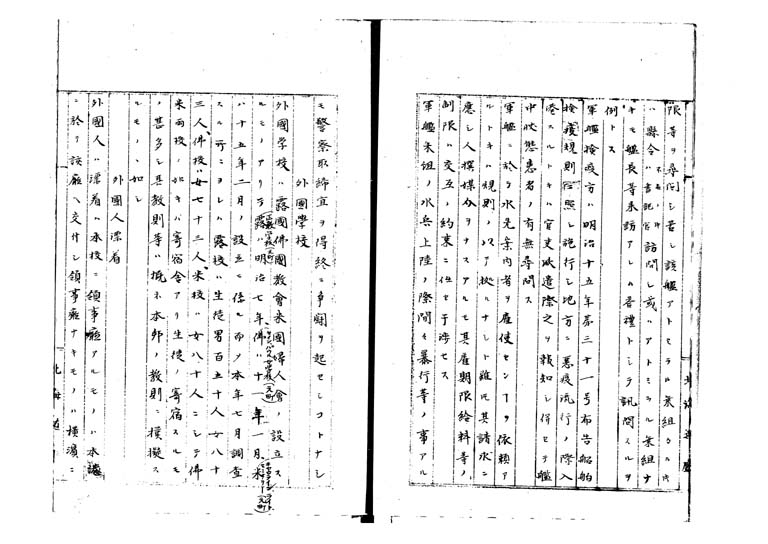 限等ヲ尋問シ若シ該艦アトミラル乗組カ
ハ縣令ハ書記官訪問シ或ハアトミラル乗組ナ
キモ艦長等来訪アレハ答禮トシテ訊問スルヲ
例トス
軍艦檢疫方ハ明治十五年第三十一号布告船舶
檢疫規則ニ照シ施行シ地方ニ悪疫流行ノ際入
港スルトキハ官吏派遣際之ヲ報知シ併セテ艦
中状態患者ノ有無尋問ス
軍艦ニ於テ水先案内者ヲ雇使センヿヲ依頼ア
ルトキハ規則ノ以テ拠ルナシト雖氏其請求ニ
應シ人撰媒介ヲナスアルモ其雇期限給料等ノ
制限ハ交互ノ約束ニ任セテ干渉セス
軍艦来泊ノ水兵上陸ノ際間々暴行等ノ事アル
モ警察取締宜ヲ得終ニ争闘ヲ起セシコトナシ
外國學校
外國学校ハ露國佛國教會米國婦人會ノ設立ス
ルモノアリテ露ハ明治七年佛ハ十一年一月米
ハ十五年二月ノ設立ニ係ル而ノ本年七月調査
スル所ニヨレハ露校ハ生徒男百五十人女八十
三人佛校ハ女七十三人米校ハ女八十人ニシテ佛
米両校ノ如キハ寄宿舎アリ生徒ノ寄宿スルモ
ノ甚多シ其教則等ハ概ネ本邦ノ教則ニ模擬ス
ルモノヽ如シ
外國人漂着
外國人ハ漂着ハ本校ニ領事廰アルモノハ本
ニ於テ該廰ヘ交付シ領事廰ナキモノハ横濱ニ
北海道